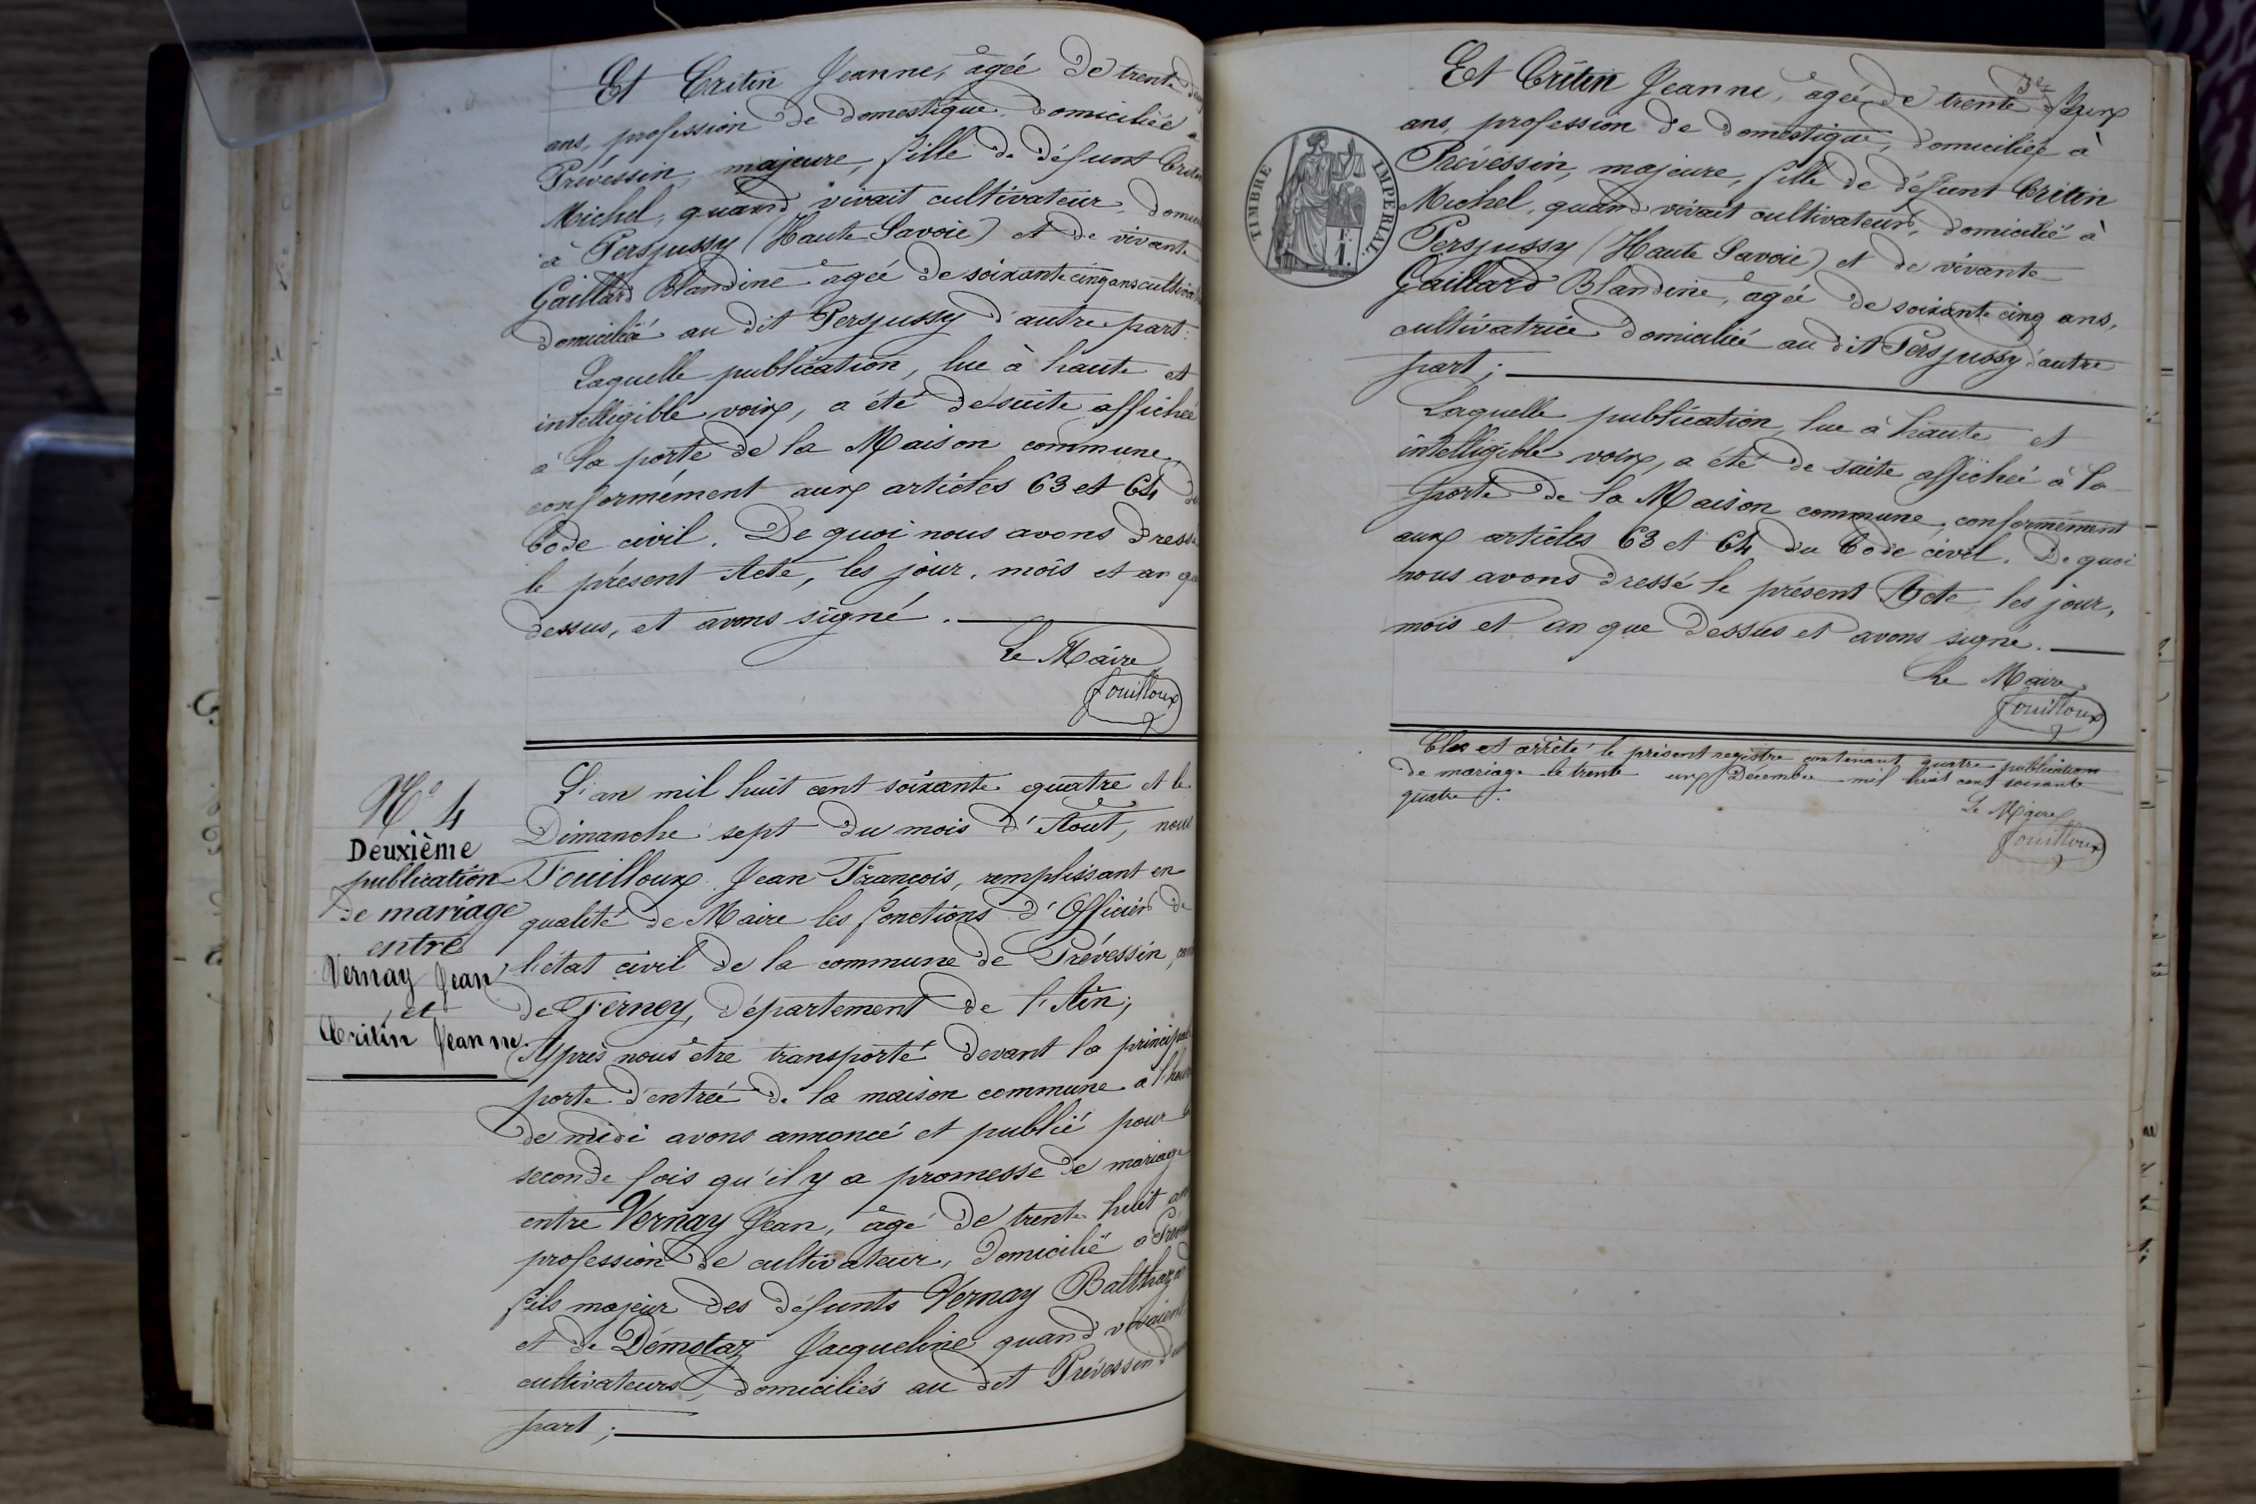 Et Critin Jeanne, âgée de trente deux
ans, profession de domestique, domiciliée à
Prévessin, majeure, fille de défunt Critin
Michel, quand vivait cultivateur,
à Persjussy (Haute Savoie) et de vivante
Gaillard Blandine âgée de soixante cinq ans
domiciliée au dit Persjussy d'autre part.
Laquelle publication, lue à haute et
intelligible voix, a été de suite affichée
à la porte de la Maison commune,
conformément aux articles 63 et 64 du
Code civil. De quoi nous avons dressé
le présent Acte, les jour, mois et an que
dessus, et avons signé.
Le Maire
Fouilloux
N° 4
Deuxième
publication
de mariage
entre
Vernay Jean
et
Critin Jeanne.
L'an mil huit cent soixante quatre et le
Dimanche sept du mois d'Août, nous
Fouilloux Jean François, remplissant en
qualité de Maire les fonctions d'Officier de
l'état civil de la commune de Prévessin,
de Ferney, département de l'Ain;
Après nous être transporté devant la principale
porte d'entrée de la maison commune à l'heure
de midi avons annoncé et publié pour la
seconde fois qu'il y a promesse de mariage
entre Vernay Jean, âgé de trente huit ans
profession de cultivateur, domicilié à
fils majeur des défunts Vernay Balthazard
et de Démotaz Jacqueline quand vivaient
cultivateurs, domiciliés au dit Prévessin d'une
part;
Et Critin Jeanne, âgée de trente deux
ans, profession de domestique, domiciliée à
Prévessin, majeure, fille de défunt Critin
Michel, quand vivait cultivateur, domicilié à
Persjussy (Haute Savoie) et de vivante
Gaillard Blandine, âgée de soixante cinq ans,
cultivatrice domiciliée au dit Persjussy d'autre
part;
TIMBRE IMPERIAL
Laquelle publication, lue à haute et
intelligible voix, a été de suite affichée à la
porte de la Maison commune, conformément
aux articles 63 et 64 du Code civil. De quoi
nous avons dressé le présent Acte les jour,
mois et an que dessus et avons signé.
Le Maire
Fouilloux
Clos et arrêté le présent registre contenant quatre publications
de mariage le trente un Décembre mil huit cent soixante
quatre.
Le Maire
Fouilloux